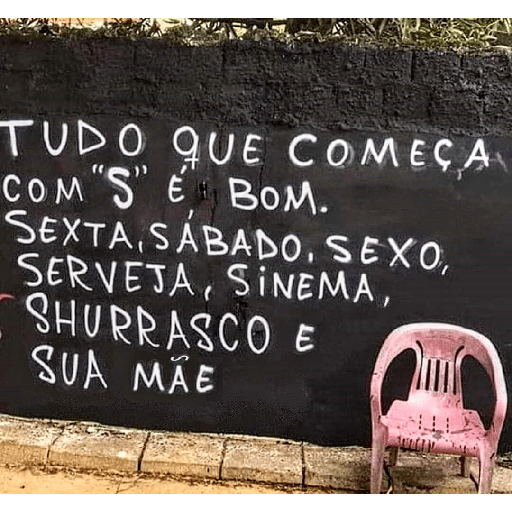 TUDO QUE COMEÇA
COM "S" É BOM.
SEXTA, SÁBADO, SEXO,
SERVEJA, SINEMA,
SHURRASCO E
SUA MÃE